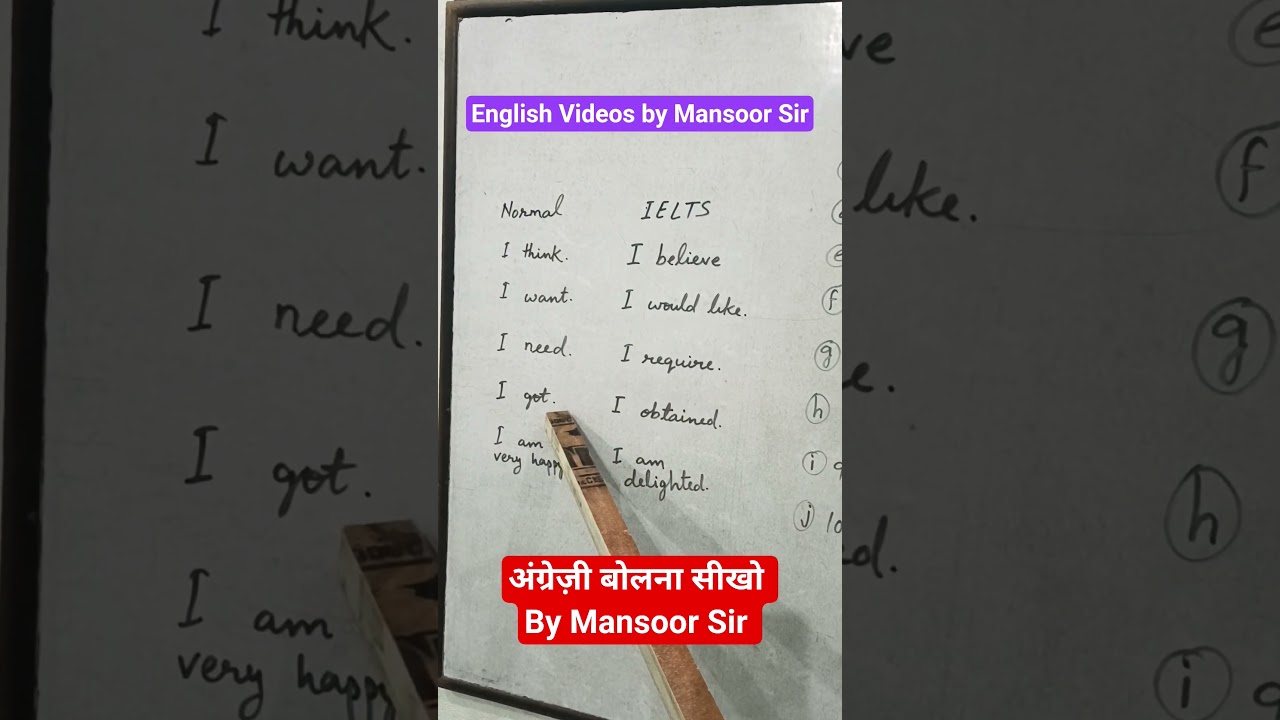 English Videos by Mansoor Sir
Normal IELTS
I think. I believe
I want. I would like.
I need. I require.
I got. I obtained.
I am very happy I am delighted.
e
f
g
h
i
j
अंग्रेज़ी बोलना सीखो
By Mansoor Sir